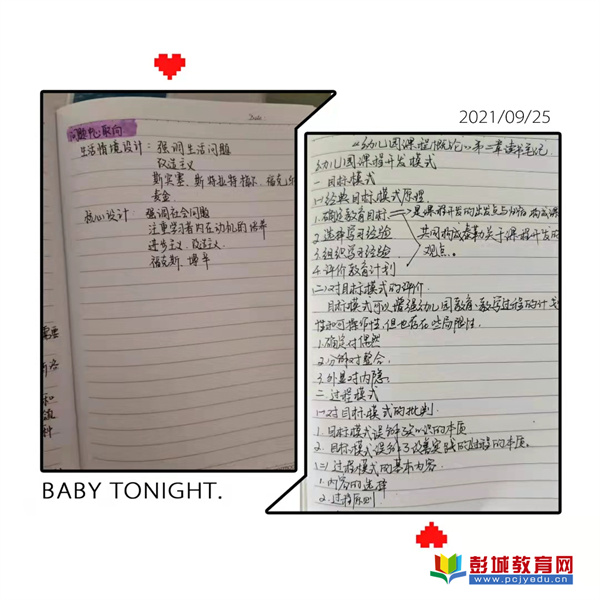 Date:
问题中心取向
生活情境设计：强调生活问题
改造主义
斯宾塞、斯特拉特梅尔、福克斯
麦金
核心设计：强调社会问题
注重学习者内在动机的培养
进步主义、改造主义
福克斯、博辛
需要
和
种
BABY TONIGHT.
2021/09/25
《幼儿园课程概论》第二章读书笔记
幼儿园课程开发模式
一目标模式
(一)经典目标模式原理
1.确定教育目标 是课程开发的出发点与归宿 构成课
2.选择学习经验 共同构成泰勒关于课程开发的
3.组织学习经验 观点。
4.评价教育计划
(二)对目标模式的评价
目标模式可以增强幼儿园教育、教学过程的计
性和可操作性,但也存在些局限性.
1.确定对偶然
2.分解对整合.
3.外显对内隐.
二.过程模式
(一)对目标模式的批判
1.目标模式误解知识的本质
2.目标模式误解了改善实践的过程的本质。
(二)过程模式的基本内容.
1.内容的选择
2.过程原则
彭城教育网
www.pcjyedu.cn